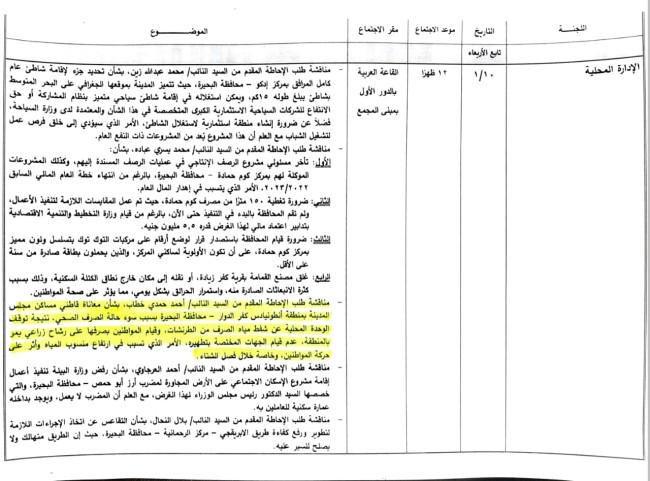 اللجنة
التاريخ
موعد الاجتماع
مقر الاجتماع
الموضوع
تابع الأربعاء
الإدارة المحلية
١/١٠
١٢ ظهرًا
القاعة العربية
بالدور الأول
بمبنى المجمع
- مناقشة طلب الإحاطة المقدم من السيد النائب/ محمد عبدالله زين، بشأن تحديد جزء لإقامة شاطئ عام
كامل المرافق بمركز إدكو – محافظة البحيرة، حيث تتميز المدينة بموقعها الجغرافي على البحر المتوسط
بشاطئ يبلغ طوله ١٥كم، ويمكن استغلاله في إقامة شاطئ سياحي متميز بنظام المشاركة أو حق
الانتفاع للشركات السياحية الاستثمارية الكبرى المتخصصة في هذا الشأن والمعتمدة لدى وزارة السياحة،
فضلًا عن ضرورة إنشاء منطقة استثمارية لاستغلال الشاطئ، الأمر الذي سيؤدي إلى خلق فرص عمل
لتشغيل الشباب مع العلم أن هذا المشروع يُعد من المشروعات ذات النفع العام.
- مناقشة طلب الإحاطة المقدم من السيد النائب/ محمد يسري عباده، بشأن:
الأول: تأخر مسئولي مشروع الرصف الإنتاجي في عمليات الرصف المسندة إليهم، وكذلك المشروعات
الموكلة لهم بمركز كوم حمادة – محافظة البحيرة، بالرغم من انتهاء خطة العام المالي السابق
٢٠٢٣/٢٠٢٢، الأمر الذي يتسبب في إهدار المال العام.
الثاني: ضرورة تغطية ١٥٠ مترًا من مصرف كوم حمادة، حيث تم عمل المقايسات اللازمة لتنفيذ الأعمال،
ولم تقم المحافظة بالبدء في التنفيذ حتى الآن، بالرغم من قيام وزارة التخطيط والتنمية الاقتصادية
بتدابير اعتماد مالي لهذا الغرض قدره ٥,٥ مليون جنيه.
الثالث: ضرورة قيام المحافظة باستصدار قرار لوضع أرقام على مركبات التوك توك بتسلسل ولون مميز
لمركز كوم حمادة، على أن تكون الأولوية لساكني المركز، والذين يحملون بطاقة صادرة من سنة
على الأقل.
الرابع: غلق مصنع القمامة بقرية كفر زيادة، أو نقله إلى مكان خارج نطاق الكتلة السكنية، وذلك بسبب
كثرة الانبعاثات الصادرة منه، واستمرار الحرائق بشكل يومي، مما يؤثر على صحة المواطنين.
- مناقشة طلب الإحاطة المقدم من السيد النائب/ أحمد حمدي خطاب، بشأن معاناة قاطني مساكن مجلس
المدينة بمنطقة أنطونيادس كفر الدوار – محافظة البحيرة بسبب سوء حالة الصرف الصحي، نتيجة توقف
الوحدة المحلية عن شفط مياه الصرف من الطرنشات، وقيام المواطنين بصرفها على رشاح زراعي يمر
بالمنطقة، عدم قيام الجهات المختصة بتطهيره، الأمر الذي تسبب في ارتفاع منسوب المياه وأثر على
حركة المواطنين، وخاصة خلال فصل الشتاء.
- مناقشة طلب الإحاطة المقدم من السيد النائب/ أحمد العرجاوي، بشأن رفض وزارة البيئة تنفيذ أعمال
إقامة مشروع الإسكان الاجتماعي على الأرض المجاورة لمضرب أرز أبو حمص – محافظة البحيرة، والتي
خصصها السيد الدكتور رئيس مجلس الوزراء لهذا الغرض، مع العلم أن المضرب لا يعمل، ويوجد بداخله
عمارة سكنية للعاملين به.
- مناقشة طلب الإحاطة المقدم من السيد النائب/ بلال النحال، بشأن التقاعس عن اتخاذ الإجراءات اللازمة
لتطوير ورفع كفاءة طريق الابريقجي – مركز الرحمانية – محافظة البحيرة، حيث إن الطريق متهالك ولا
يصلح للسير عليه.